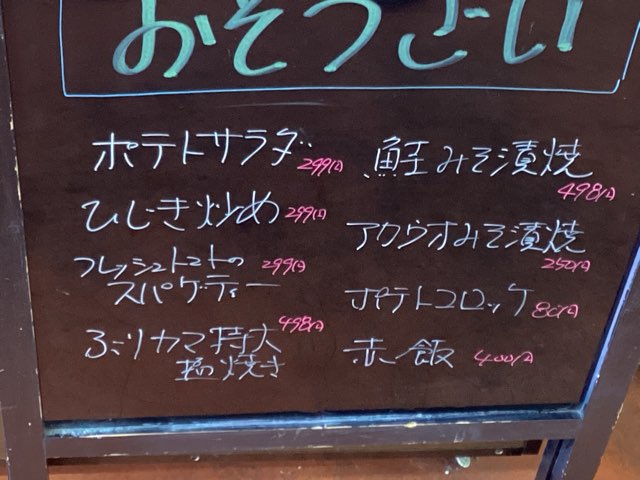 おそうざい
ポテトサラダ 299円
ひじき炒め 299円
フレッシュトマトの 299円
スパゲティー
ぶりカマ特大 498円
塩焼き
鮭みそ漬焼
498円
アカウオみそ漬焼
250円
ポテトコロッケ 80円
赤飯 400円